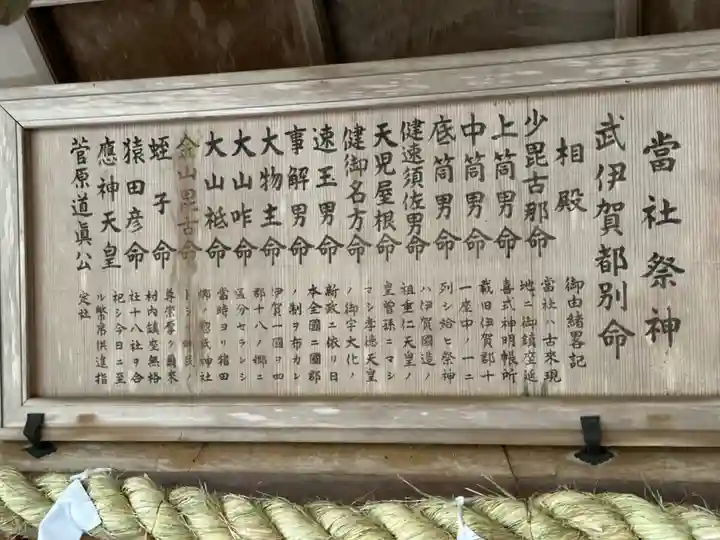 當社祭神
武伊賀都別命
相殿
少毘古那命
上筒男命
中筒男命
底筒男命
健速須佐男命
天児屋根命
健御名方命
速玉男命
事解男命
大物主命
大山咋命
大山祇命
金山毘古命
蛭子命
猿田彦命
應神天皇
菅原道眞公
御由緒畧記
當社ハ古来現
地ニ御鎮座延
喜式神明帳所
載旧伊賀郡十
一座中ノ一ニ
列シ給ヒ祭神
ハ伊賀國造ノ
祖垂仁天皇ノ
皇曽孫ニマシ
マシ孝徳天皇
ノ御宇大化ノ
新政ニ依リ日
本全國ニ國郡
ノ制ヲ布カレ
伊賀一國ヲ四
郡十八ノ郷ニ
區分セラレシ
當時ヨリ猪田
郷ノ惣社神社
トシ
尊崇 爾来
村内鎮座無格
社十八社ヲ合
祀シ今日ニ至
ル幣帛供進指
定社